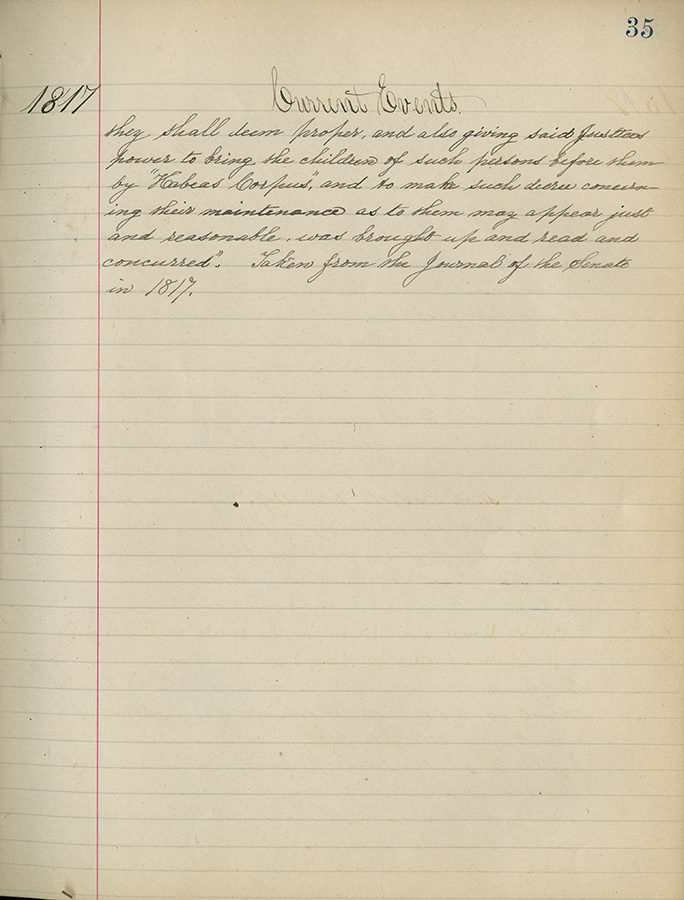 35
1817 Current Events.
they shall deem proper, and also giving said Justices
power to bring the children of such persons before them
by "Habeas Corpus", and to make such decree concern-
ing their maintenance as to them may appear just
and reasonable, was brought up and read and
concurred". Taken from the Journal of the Senate
in 1817.